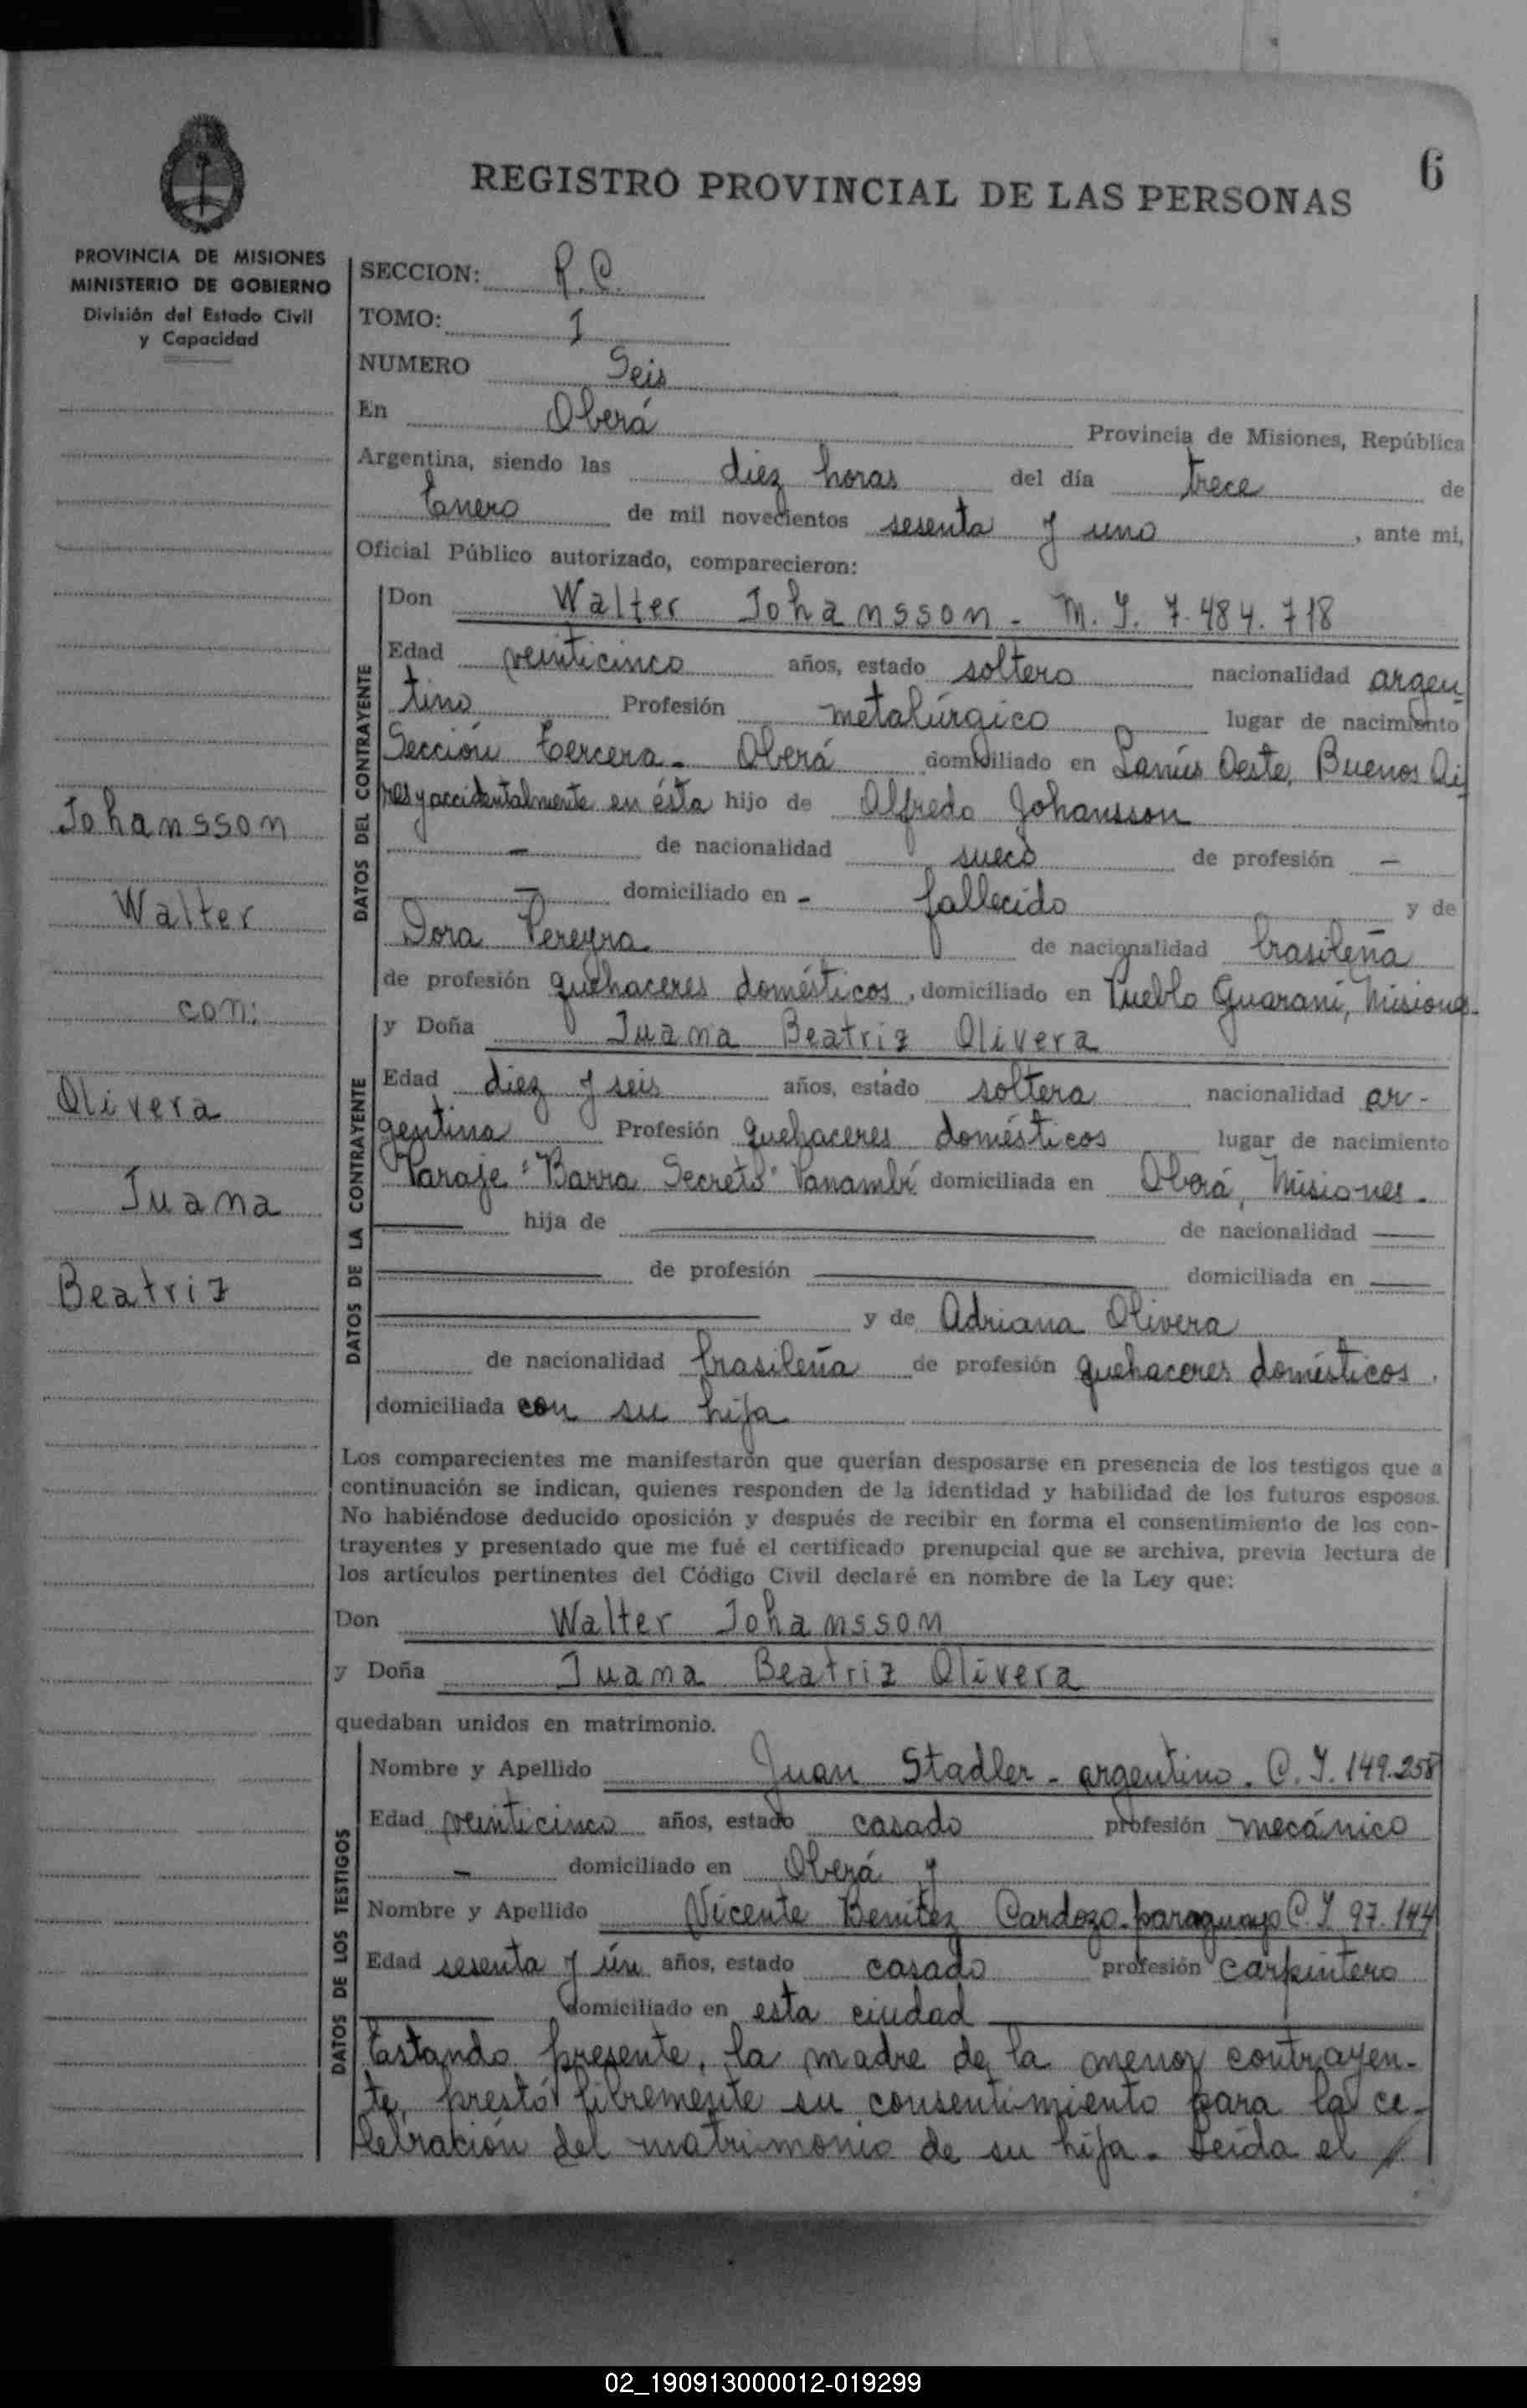 6
REGISTRO PROVINCIAL DE LAS PERSONAS
PROVINCIA DE MISIONES
MINISTERIO DE GOBIERNO
División del Estado Civil
y Capacidad
Johansson
Walter
con:
Olivera
Juana
Beatriz
SECCION: R.C.
TOMO: 1
NUMERO Seis
En Oberá Provincia de Misiones, República
Argentina, siendo las diez horas del día trece de
Enero de mil novecientos sesenta y uno, ante mi,
Oficial Público autorizado, comparecieron:
DATOS DEL CONTRAYENTE
Don Walter Johansson - M. I. 7.484.718
Edad veinticinco años, estado soltero nacionalidad argen
tino Profesión metalúrgico lugar de nacimiento
Sección tercera - Oberá domiciliado en Lanús Oeste, Buenos Ai
res y accidentalmente en ésta hijo de Alfredo Johansson
- de nacionalidad sueco de profesión -
- domiciliado en - fallecido y de
Dora Pereyra de nacionalidad brasileña
de profesión quehaceres domésticos, domiciliado en Pueblo Guaraní, Misiones-
DATOS DE LA CONTRAYENTE
y Doña Juana Beatriz Olivera
Edad diez y seis años, estado soltera nacionalidad ar-
gentina Profesión quehaceres domésticos lugar de nacimiento
Paraje "Barra Secreto" Panambí domiciliada en Oberá, Misiones.
hija de de nacionalidad
de profesión domiciliada en
y de Adriana Olivera
de nacionalidad brasileña de profesión quehaceres domésticos,
domiciliada con su hija
Los comparecientes me manifestaron que querían desposarse en presencia de los testigos que a
continuación se indican, quienes responden de la identidad y habilidad de los futuros esposos.
No habiéndose deducido oposición y después de recibir en forma el consentimiento de los con-
trayentes y presentado que me fué el certificado prenupcial que se archiva, previa lectura de
los artículos pertinentes del Código Civil declaré en nombre de la Ley que:
Don Walter Johansson
y Doña Juana Beatriz Olivera
quedaban unidos en matrimonio.
DATOS DE LOS TESTIGOS
Nombre y Apellido Juan Stadler - argentino. C. I. 149.258
Edad veinticinco años, estado casado profesión mecánico
- domiciliado en Oberá y
Nombre y Apellido Vicente Benítez Cardozo - paraguayo C. I. 97.144
Edad sesenta y ún años, estado casado profesión carpintero
domiciliado en esta ciudad
Estando presente, la madre de la menor contrayen-
te, prestó libremente su consentimiento para la ce-
lebración del matrimonio de su hija. Leída el
02_190913000012-019299